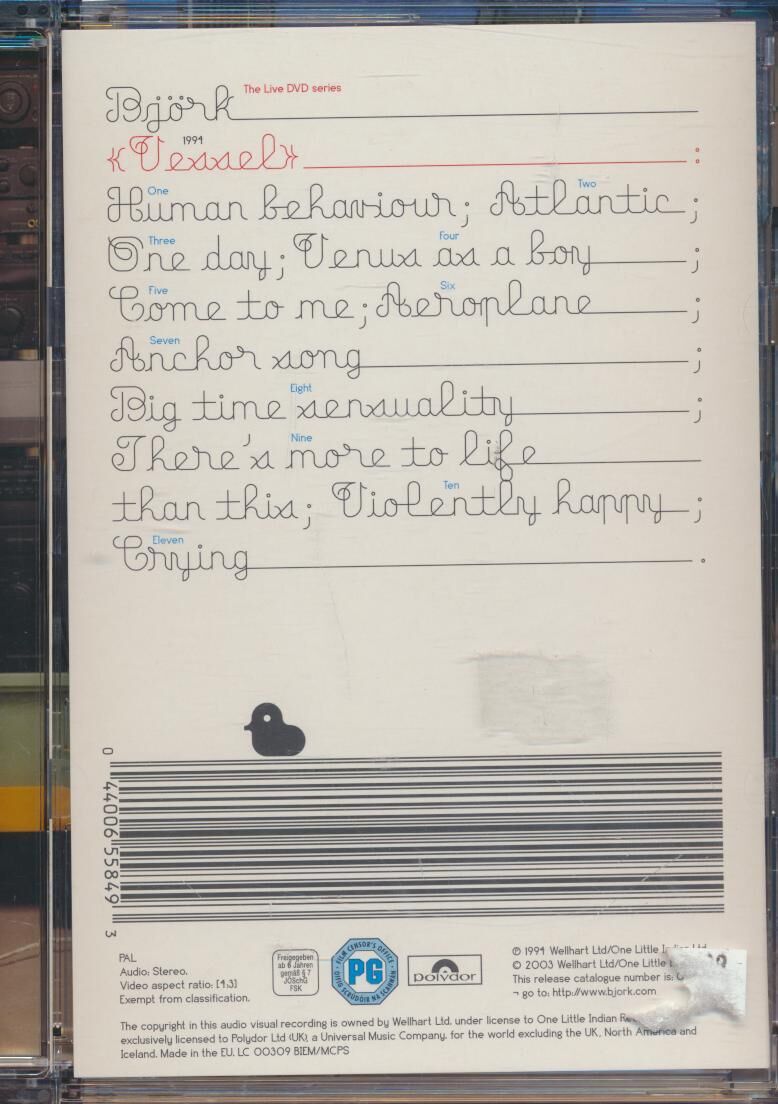 The Live DVD series
Björk
1994
{Vessel} :
One Two
Human behaviour; Atlantic ;
Three Four
One day; Venus as a boy ;
Five Six
Come to me; Aeroplane ;
Seven
Anchor song ;
Eight
Big time sensuality ;
Nine
There's more to life
Ten
than this; Violently happy ;
Eleven
Crying .
0 44006 55849 3
PAL
Audio: Stereo.
Video aspect ratio: [4:3]
Exempt from classification.
Freigegeben
ab 6 Jahren
gemäß § 7
JÖSchG
FSK
FILM CENSOR'S OFFICE
PG
OIFIG SCRÚDÓIR NA SCANNÁN
polydor
℗ 1994 Wellhart Ltd/One Little
© 2003 Wellhart Ltd/One Little
This release catalogue number is:
¬ go to: http://www.bjork.com
The copyright in this audio visual recording is owned by Wellhart Ltd. under license to One Little Indian
exclusively licensed to Polydor Ltd (UK), a Universal Music Company, for the world excluding the UK, North America and
Iceland. Made in the EU. LC 00309 BIEM/MCPS